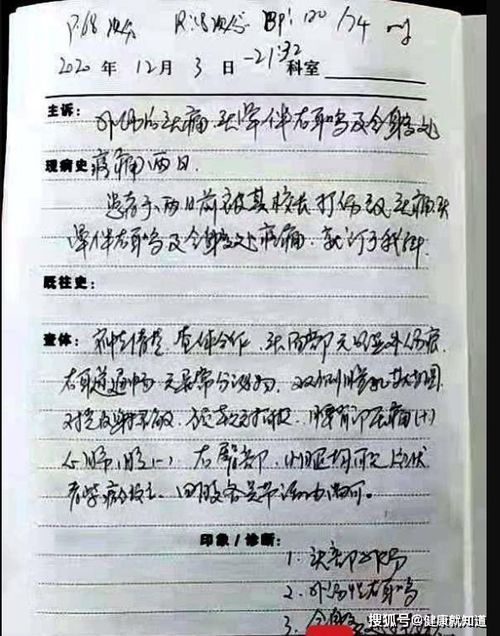 P:68次/分 R:18次/分 BP:120/74
2020年12月3日 -21:32 科室
主诉: 外伤后头痛、头晕伴右耳鸣及全身多处
现病史 疼痛两日.
患者于两日前被某校长打伤致头痛头
晕伴右耳鸣及全身多处疼痛, 就诊于我科.
既往史:
查体: 神志清楚, 查体合作, 头面部无明显外伤痕
右耳道通畅 无异常分泌物, 双侧瞳孔等大等圆
对光反射灵敏, 腰背部压痛(+)
心肺(-) 右臀部,
四肢各关节活动尚可。
印象/诊断:
1. 头部外伤
2. 外伤性右耳鸣
3. 全身多
搜狐号@健康就知道